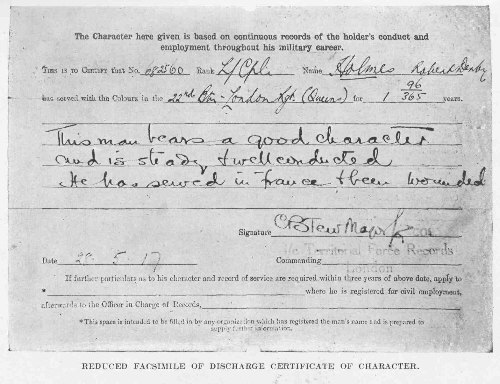 The Character here given is based on continuous records of the holder's conduct and
employment throughout his military career.
THIS IS TO CERTIFY that No. 682560 Rank L/Cpl. Name Holmes Robert Derby
has served with the Colours in the 22nd Bn. London Rgt. (Queens) for 1 96/365 years.
This man bears a good character
and is steady & well conducted
He has served in France & been wounded
Signature Major
Territorial Force Records
Commanding London
Date 26.5.17
If further particulars as to his character and record of service are required within three years of above date, apply to
* where he is registered for civil employment,
afterwards to the Officer in Charge of Records,
*This space is intended to be filled in by any organization which has registered the man's name and is prepared to
supply further information.
REDUCED FACSIMILE OF DISCHARGE CERTIFICATE OF CHARACTER.